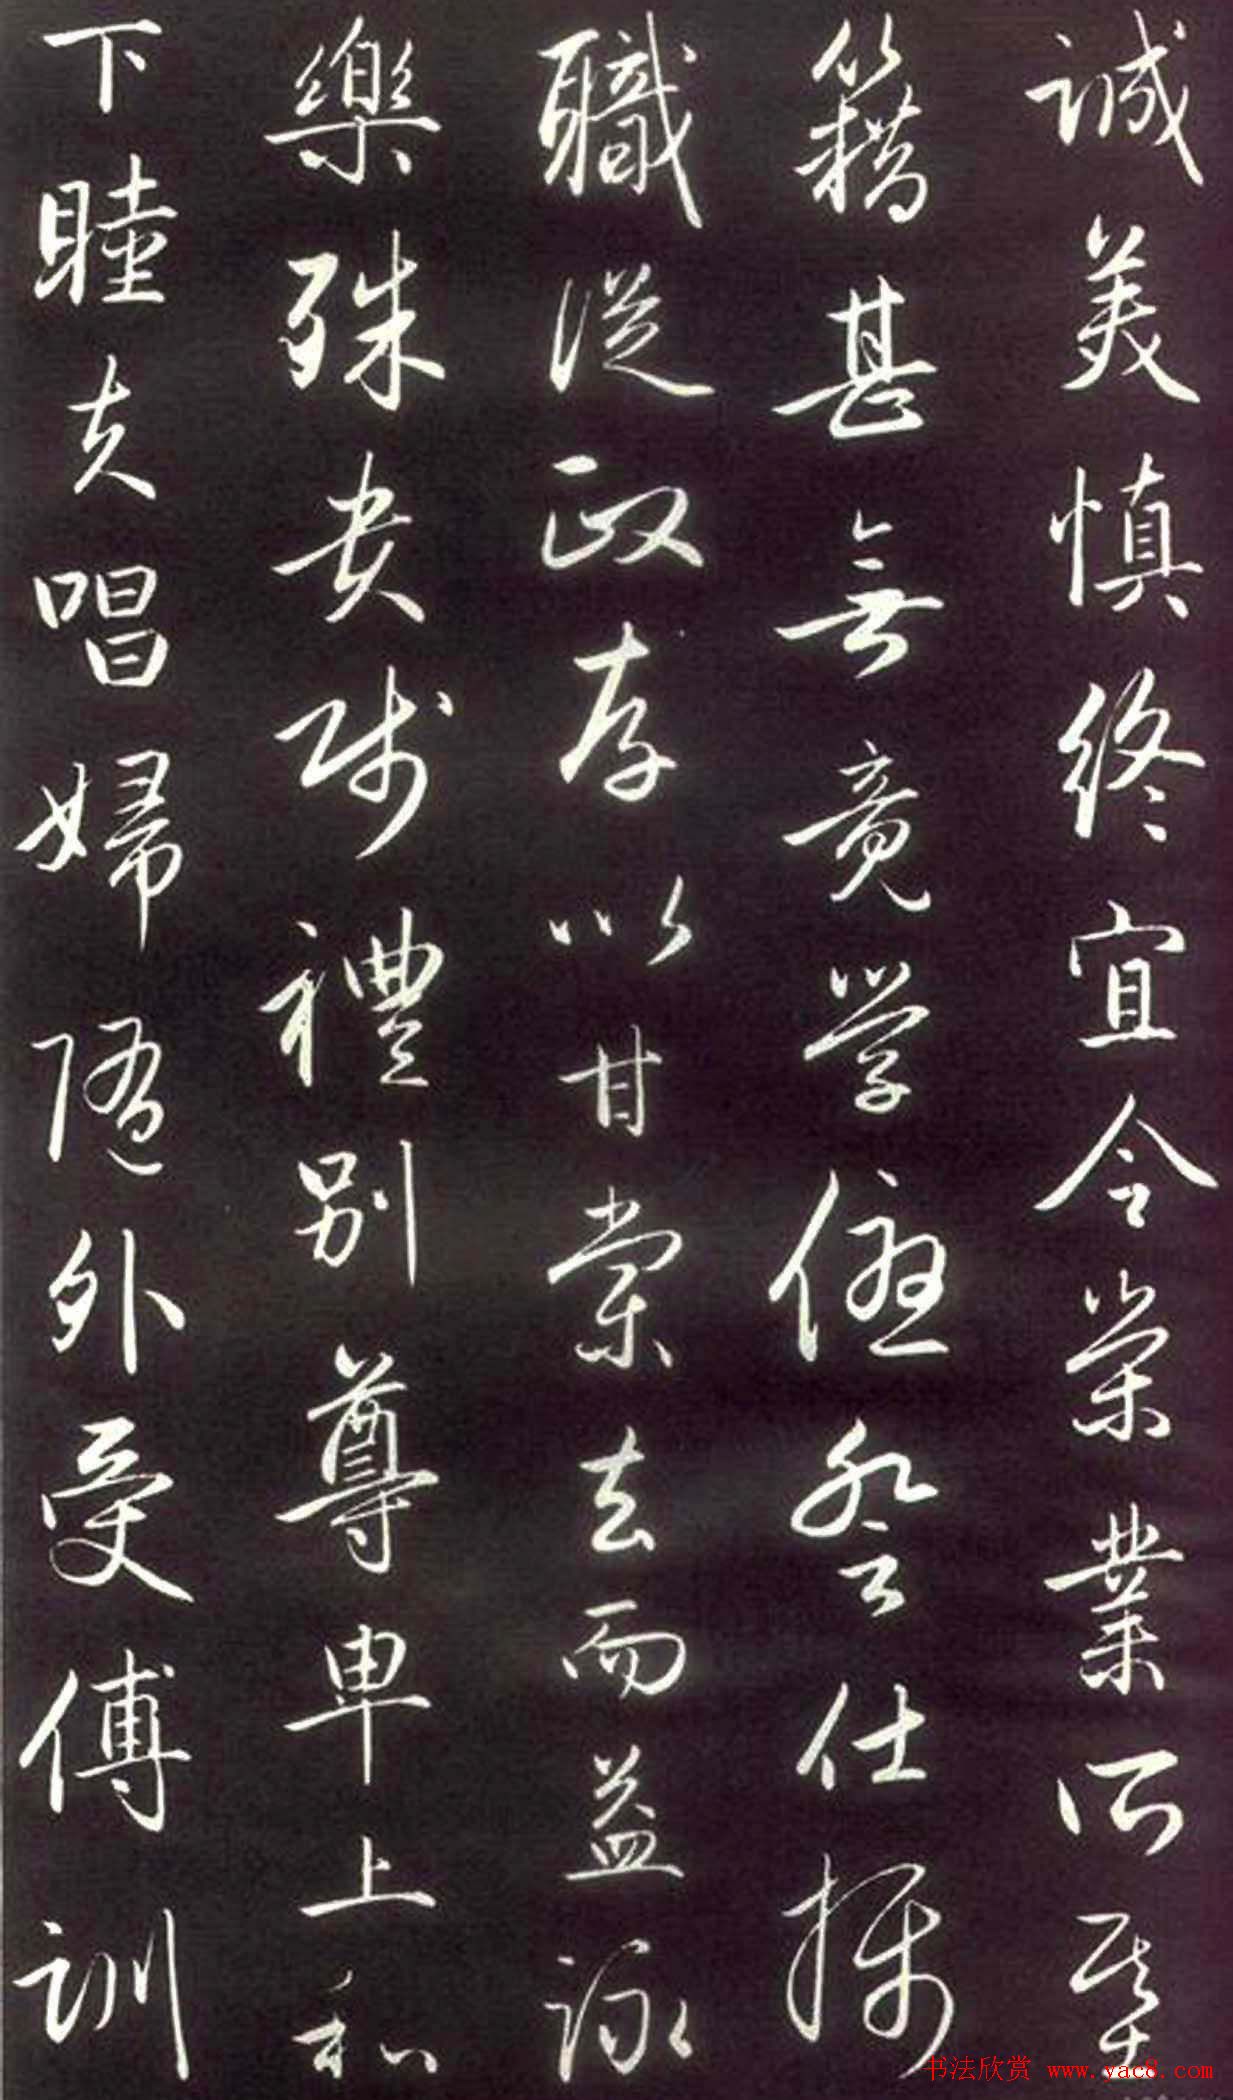 誠美慎終宜令榮業所基
籍甚無竟學優登仕攝
職從政存以甘棠去而益詠
樂殊貴賤禮別尊卑上和
下睦夫唱婦隨外受傅訓
书法欣赏 www.yac8.com